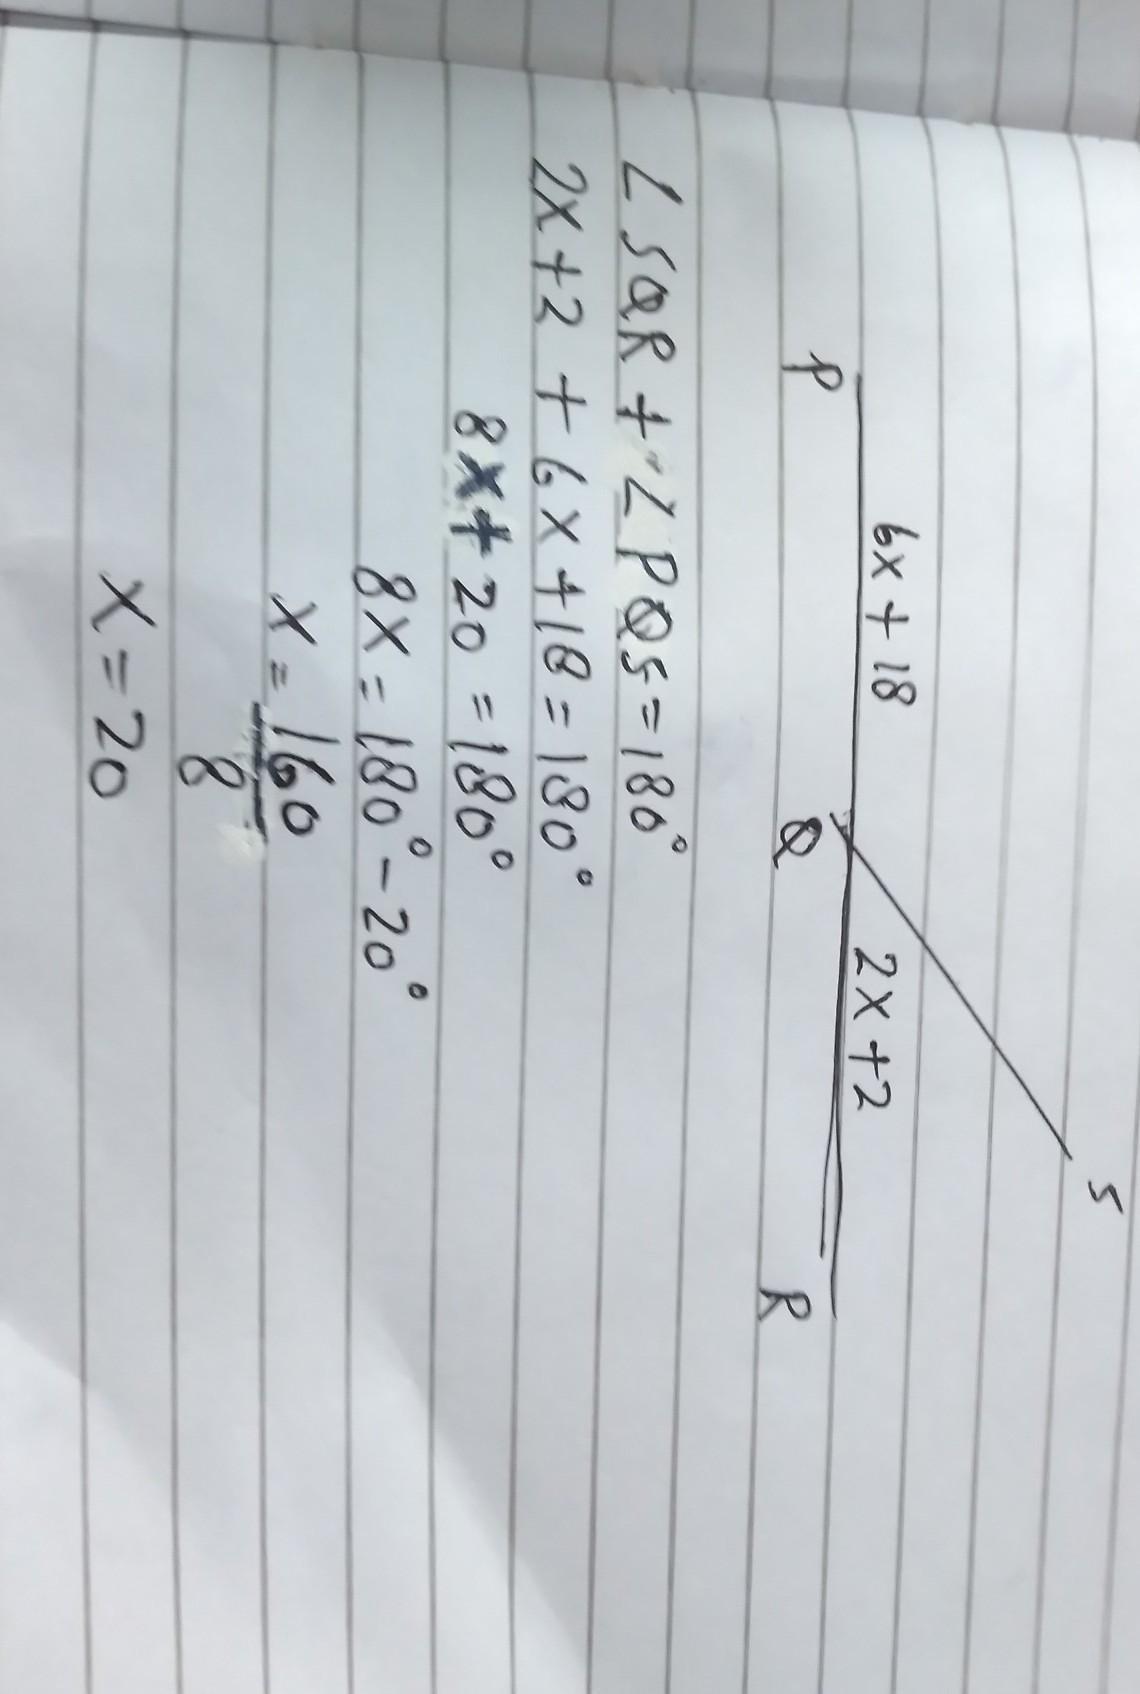 S
6x + 18 2x + 2
P Q R
∠SQR + ∠PQS = 180°
2x + 2 + 6x + 18 = 180°
8x + 20 = 180°
8x = 180° - 20°
x = 160
8
x = 20